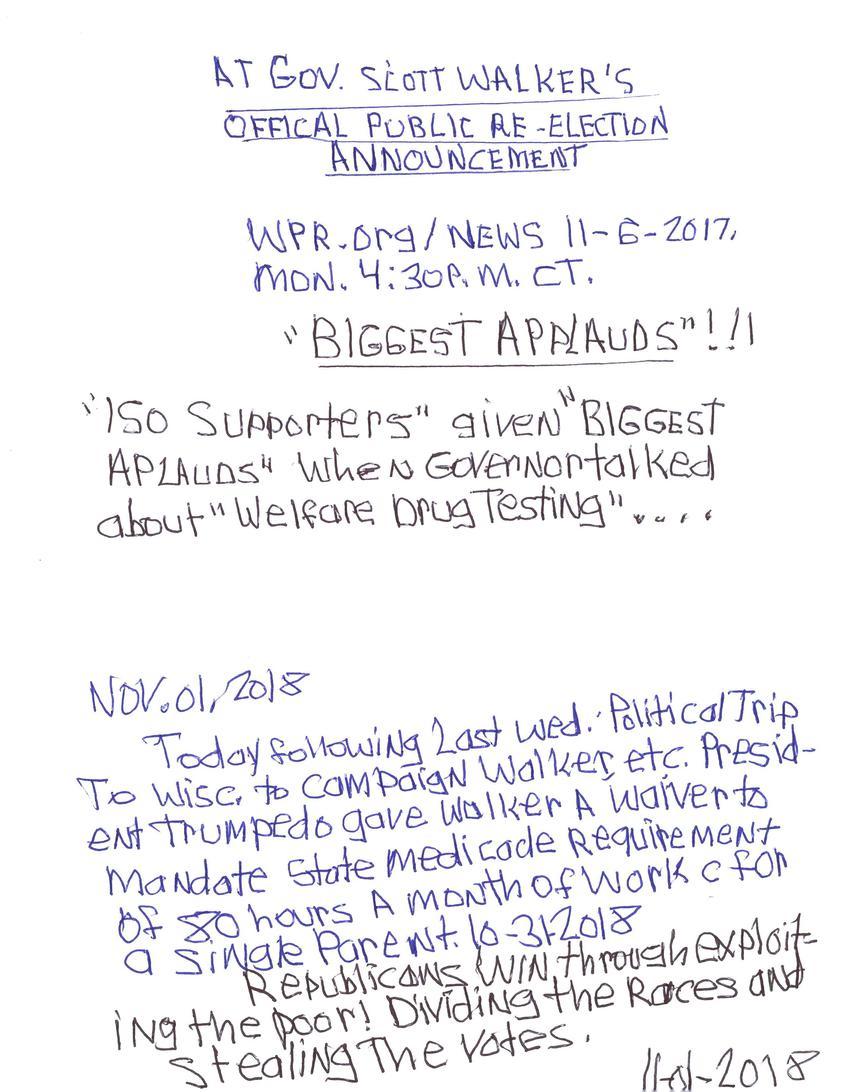 AT GOV. SCOTT WALKER'S
OFFICAL PUBLIC RE-ELECTION
ANNOUNCEMENT
WPR.org/NEWS 11-6-2017,
MON. 4:30P.M. CT.
"BIGGEST APPLAUDS"!!!
"150 Supporters" given "BIGGEST
APLAUDS" when Governor talked
about "Welfare Drug Testing"....
NOV.01,2018
Today following Last Wed. Political Trip
To Wisc. to campaign Walker, etc. Presid-
ent Trumpedo gave Walker A waiver to
Mandate State medicade Requirement
of 80 hours A month of Work c for
a single Parent. 10-31-2018
Republicans WIN through exploit-
ing the poor! Dividing the Races and
stealing The votes.
11-01-2018